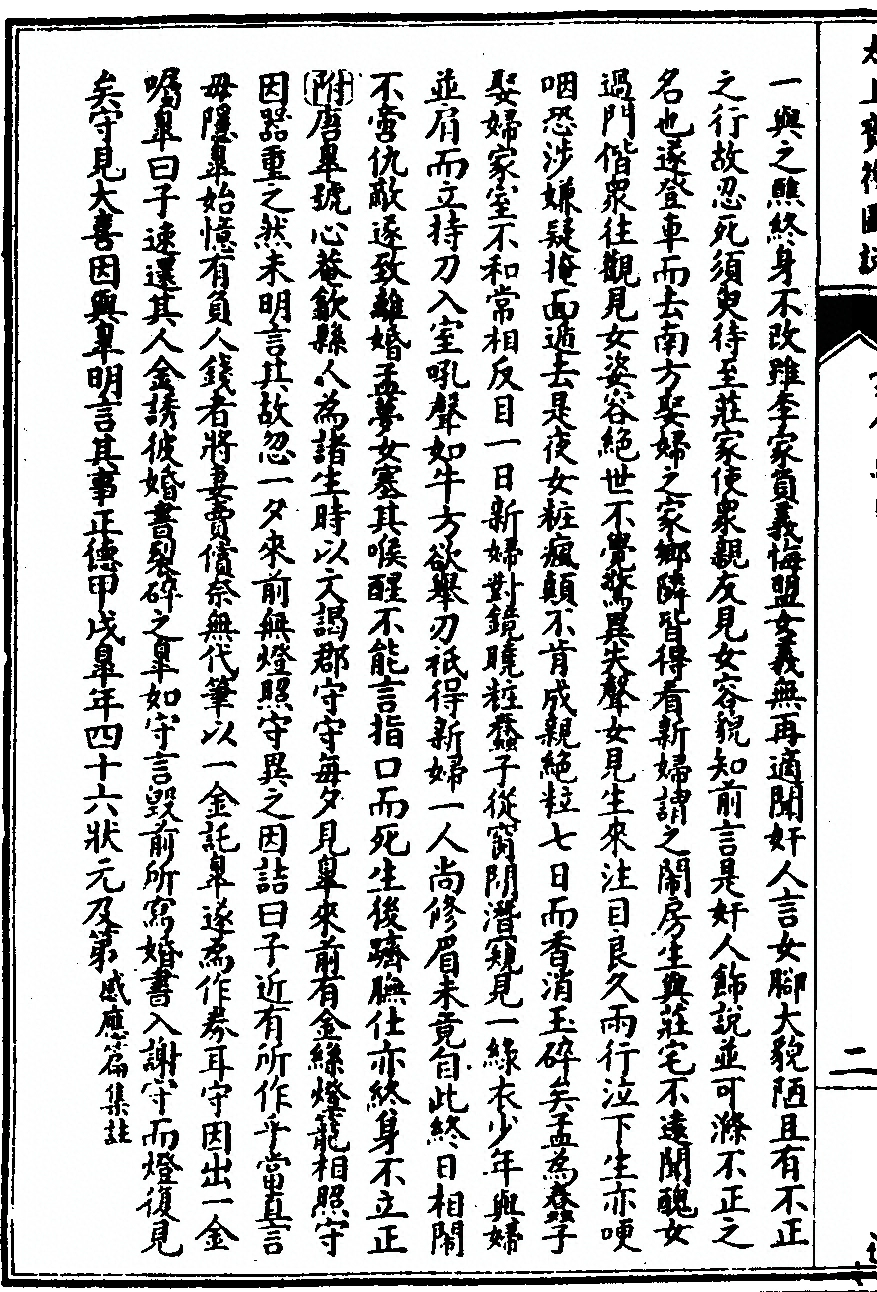 太上寶筏圖說
二
一與之醮終身不改雖李家負義悔盟女義無再適聞奸人言女腳大貌陋且有不正
之行故忍死須臾待至莊家使衆親友見女容貌知前言是奸人飾說並可滌不正之
名也遂登車而去南方娶婦之家鄉隣皆得看新婦謂之鬧房生與莊宅不遠聞醜女
過門偕衆往觀見女姿容絕世不覺驚異失聲女見生來注目良久兩行泣下生亦哽
咽恐涉嫌疑掩面遁去是夜女粧瘋顛不肯成親絕粒七日而香消玉碎矣孟為蠢子
娶婦家室不和常相反目一日新婦對鏡曉粧蠢子從窗隙潛窺見一綠衣少年與婦
並肩而立持刀入室吼聲如牛方欲舉刃祇得新婦一人尚修眉未竟自此終日相鬧
不啻仇敵遂致離婚孟夢女塞其喉醒不能言指口而死生後躋膴仕亦終身不立正
附唐臯號心菴歙縣人為諸生時以文謁郡守守每夕見臯來前有金絲燈籠相照守
因器重之然未明言其故忽一夕來前無燈照守異之因詰曰子近有所作乎當直言
毋隱臯始憶有負人錢者將妻賣償奈無代筆以一金託臯遂為作券耳守因出一金
囑臯曰子速還其人金誘彼婚書裂碎之臯如守言毀前所寫婚書入謝守而燈復見
矣守見大喜因與臯明言其事正德甲戌臯年四十六狀元及第 感應篇集註